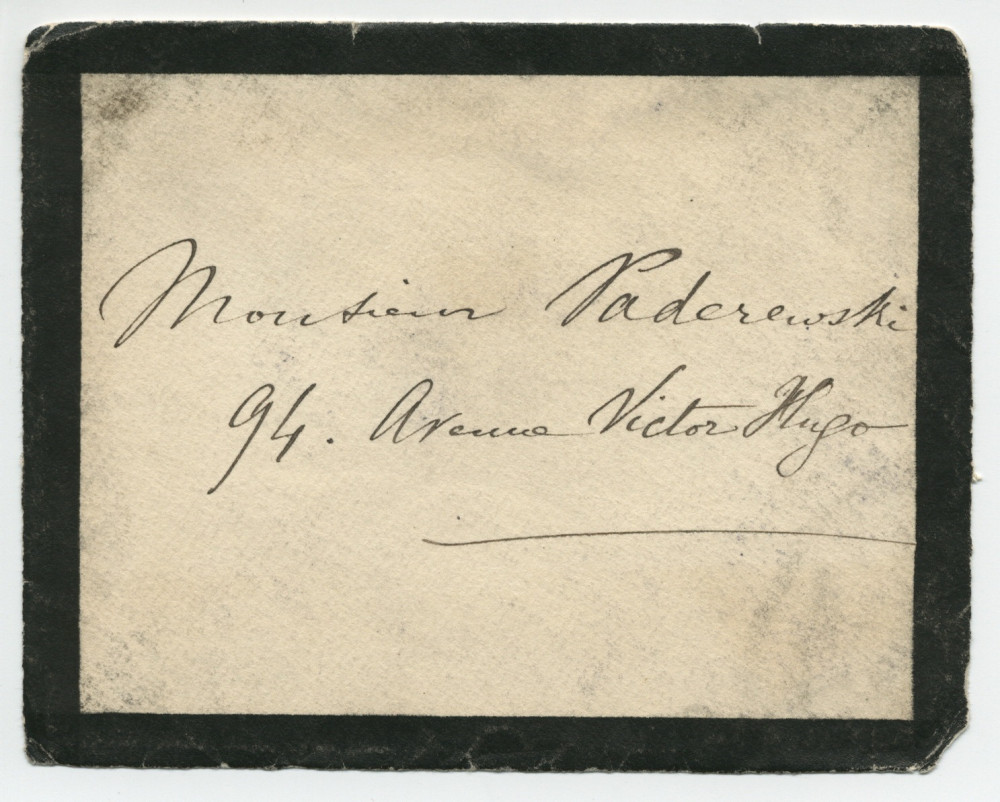 Monsieur Paderewski
94. Avenue Victor Hugo